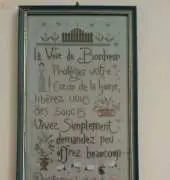 la Voie du Bonheur
Protégez votre
Cœur de la haine,
libérez vous
des soucis
Vivez Simplement
demandez peu
Offrez beaucoup